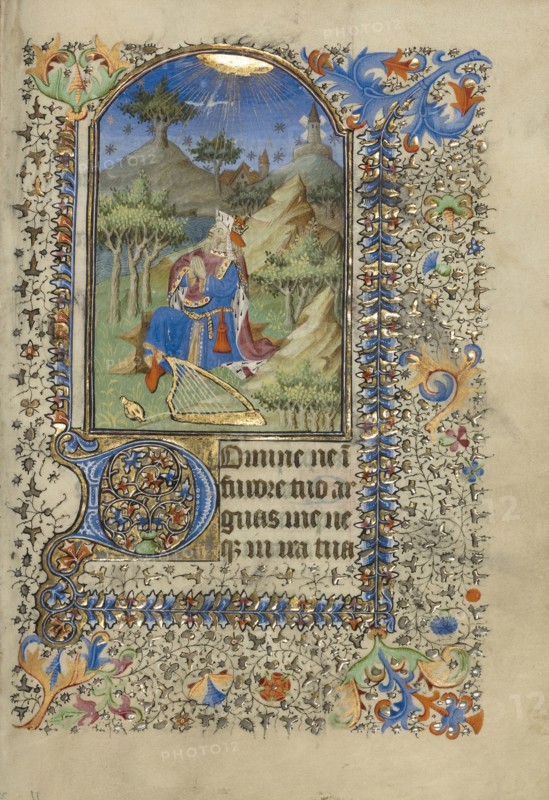 PHOTO12
PHOTO12
Domine ne ī
furore tuo ar
guas me ne
qꝫ in ira tua
PHOTO12